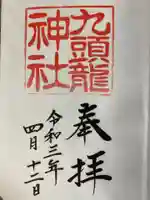 奉拝
九頭龍
神社
令和三年
四月十二日